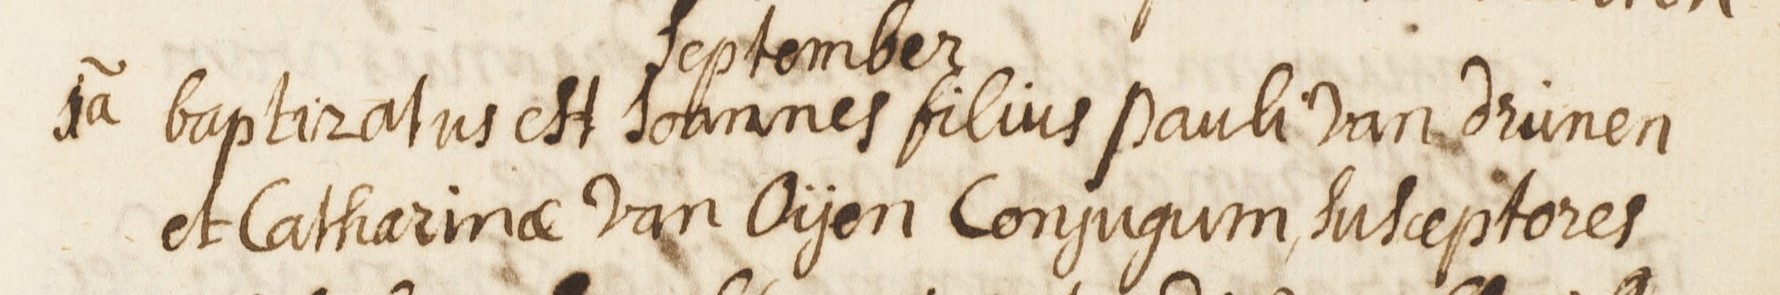 September
1ã baptizatus est Joannes filius Pauli Van drunen
et Catharinæ Van Oijen Conjugum, Susceptores